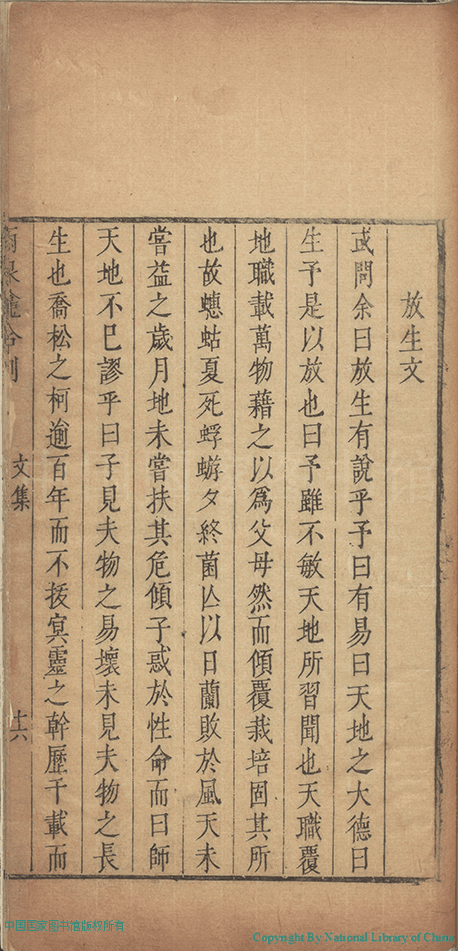 放生文
或問余曰放生有說乎予曰有易曰天地之大德曰
生予是以放也曰予雖不敏天地所習聞也天職覆
地職載萬物藉之以爲父母然而傾覆栽培固其所
也故蟪蛄夏死蜉蝣夕終菌亾以日蘭敗於風天未
嘗益之歲月地未嘗扶其危傾子惑於性命而曰師
天地不已謬乎曰子見夫物之易壞未見夫物之長
生也喬松之柯逾百年而不拔冥靈之幹歷千載而
合刊
文集
十六
中国国家图书馆版权所有
Copyright By National Library of China